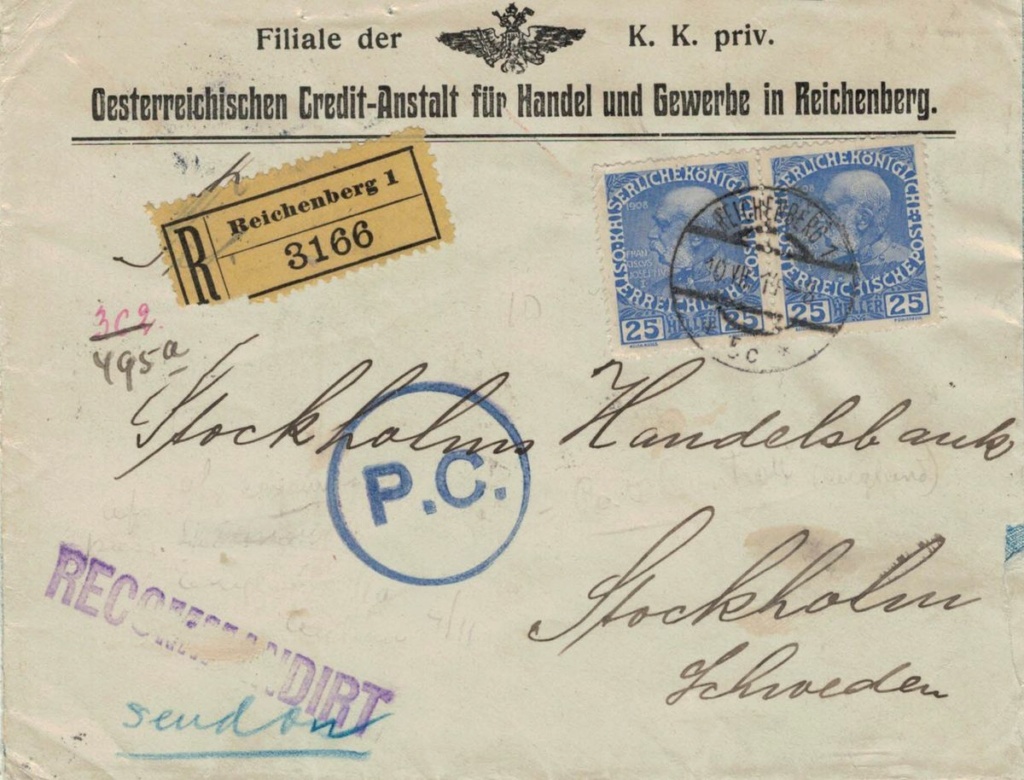 Filiale der K. K. priv.
Oesterreichischen Credit-Anstalt für Handel und Gewerbe in Reichenberg.
R Reichenberg 1
3166
KAISERLICHEKÖNIGLICHE
ÖSTERREICHISCHE POST
1908
25 HELLER 25
KAISERLICHEKÖNIGLICHE
ÖSTERREICHISCHE POST
25 HELLER 25
REICHENBERG 1
10
302
495a
10
Stockholms Handelsbank
P.C.
Stockholm
Schweden
RECOMMANDIRT
send on